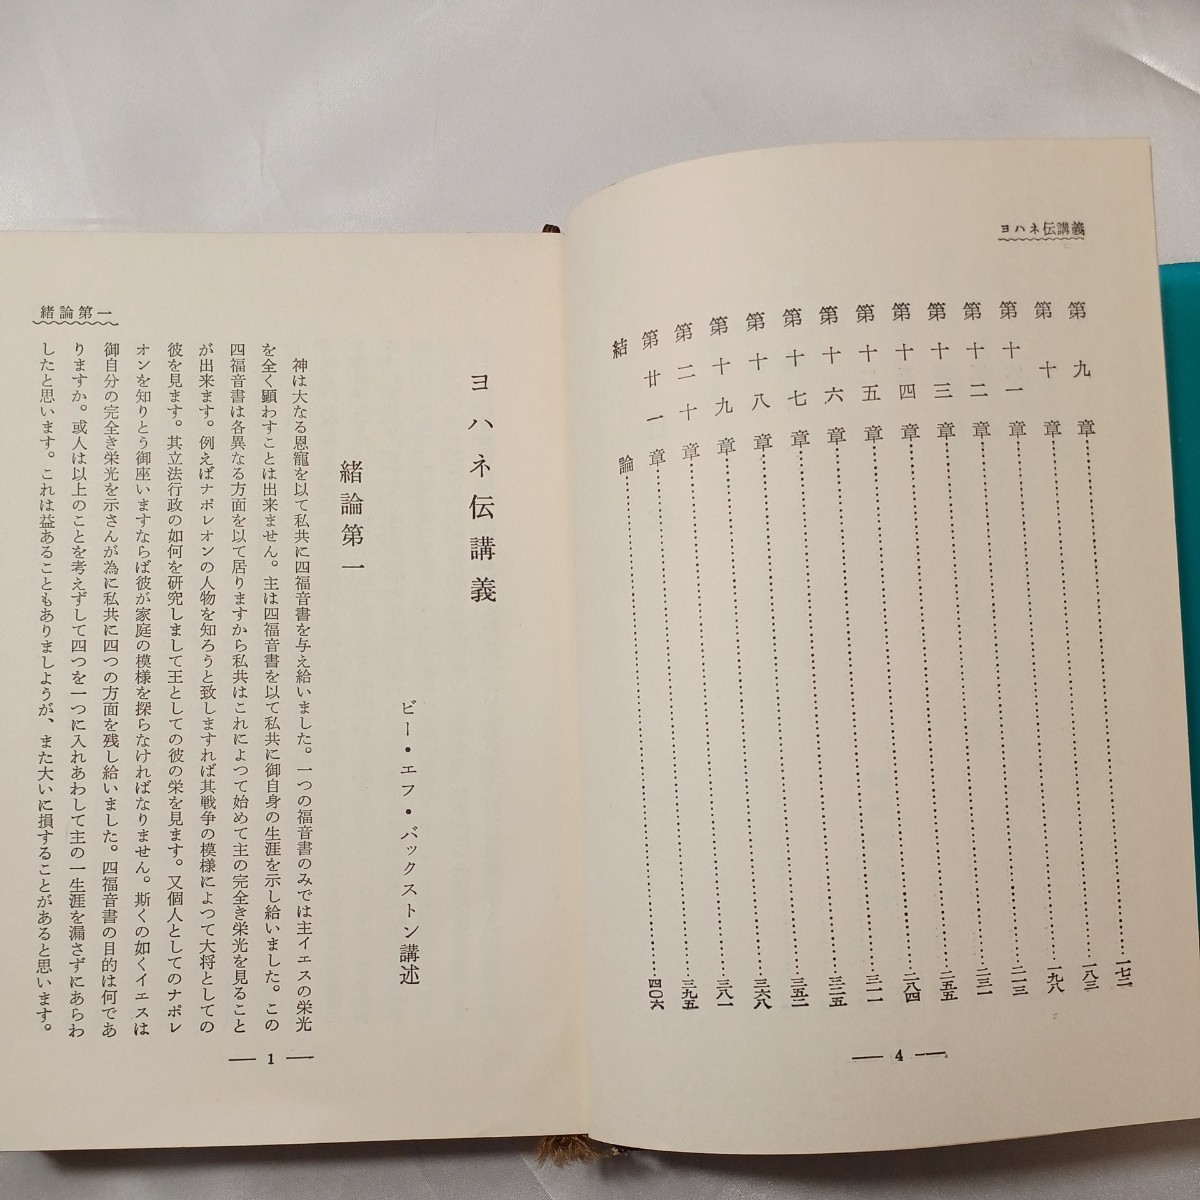 ヨハネ伝講義
第九章 一七二
第十章 一八三
第十一章 一九八
第十二章 二一三
第十三章 二三一
第十四章 二五五
第十五章 二八四
第十六章 三一一
第十七章 三二五
第十八章 三五二
第十九章 三六八
第二十章 三八一
第廿一章 三九五
結論 四〇六
4
ヨハネ伝講義
ビー・エフ・バックストン講述
緒論第一
神は大なる恩寵を以て私共に四福音書を与え給いました。一つの福音書のみでは主イエスの栄光
を全く顕わすことは出来ません。主は四福音書を以て私共に御自身の生涯を示し給いました。この
四福音書は各異なる方面を以て居りますから私共はこれによつて始めて主の完全き栄光を見ること
が出来ます。例えばナポレオンの人物を知ろうと致しますれば其戦争の模様によつて大将としての
彼を見ます。其立法行政の如何を研究しまして王としての彼の栄を見ます。又個人としてのナポレ
オンを知りとう御座いますならば彼が家庭の模様を探らなければなりません。斯くの如くイエスは
御自分の完全き栄光を示さんが為に私共に四つの方面を残し給いました。四福音書の目的は何であ
りますか。或人は以上のことを考えずして四つを一つに入れあわして主の一生涯を漏さずにあらわ
したと思います。これは益あることもありましようが、また大いに損することがあると思います。
緒論第一
1